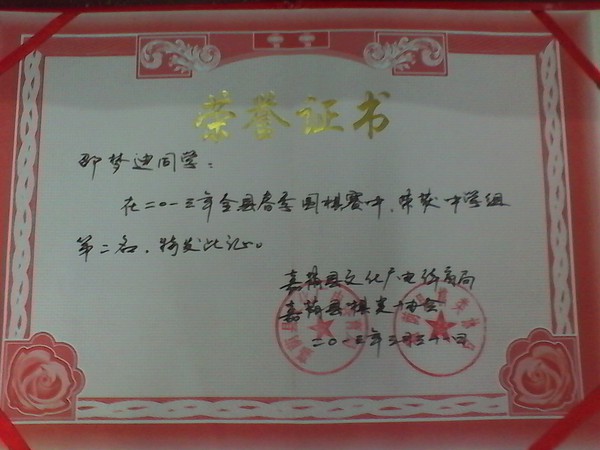 荣誉证书
邵梦迪同学：
在二〇一三年全县春季围棋赛中，荣获中学组
第二名，特发此证。
嘉祥县文化广电体育局
嘉祥县棋类协会
二〇一三年三月三十一日